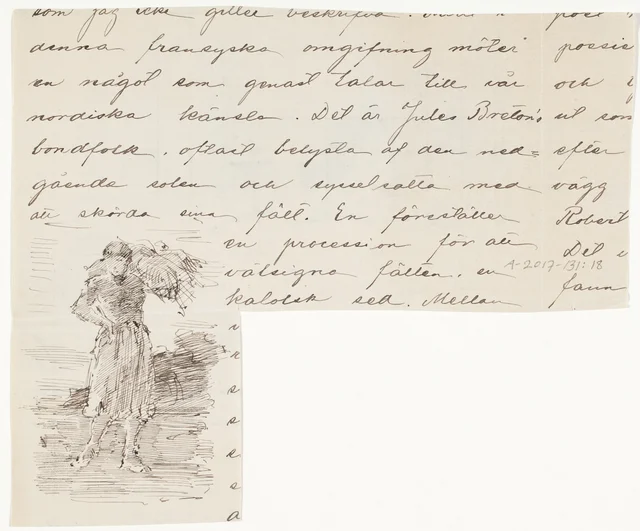 som jag icke gillee beskrifva.
denna fransyska omgifning möter
en något som genast talar till vår
nordiska känsla. Det är Jules Breton's
bondfolk, oftast belysta af den ned=
gående solen och sysselsatta med
att skörda sina fält. En föreställer
en procession för att
välsigna fälten, en
katolsk sed. Mellan
och
ut som
efter
vägg
Robert
Det
faun
A-2017-131:18